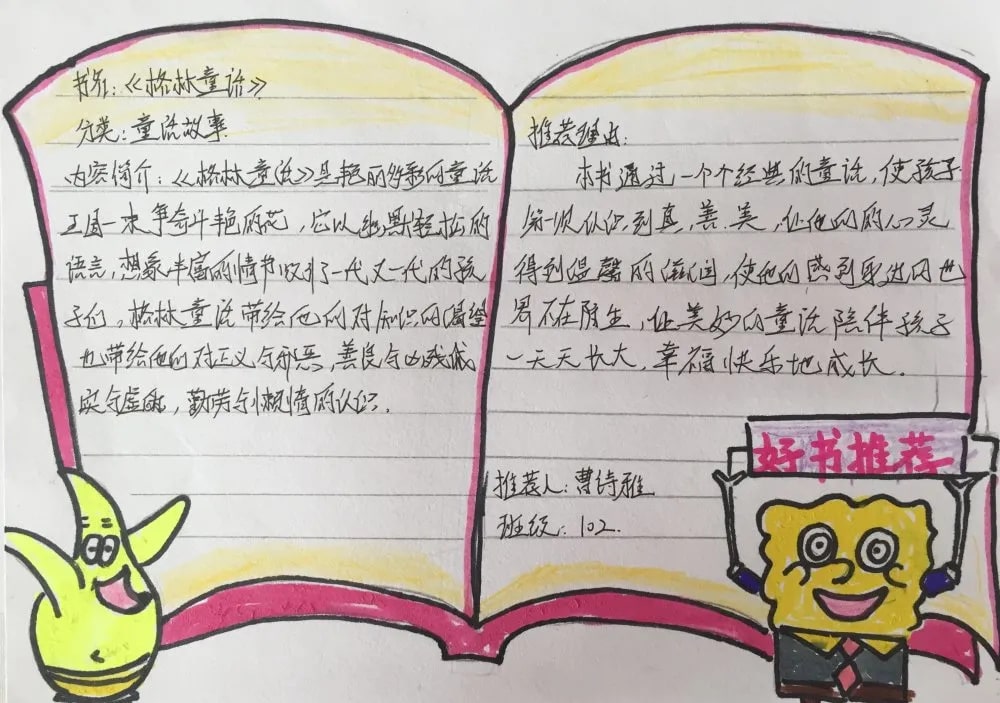 书名：《格林童话》
分类：童话故事
内容简介：《格林童话》是艳丽多彩的童话
王国一束争奇斗艳的花，它以幽默轻松的
语言，想象丰富的情节吸引了一代又一代的孩
子们，格林童话带给他们对知识的渴望
也带给他们对正义与邪恶，善良与凶残诚
实与虚伪，勤劳与懒惰的认识．
推荐理由：
本书通过一个个经典的童话，使孩子
第一次认识到真，善．美，让他们的心灵
得到温馨的滋润，使他们感到身边的世
界不在陌生，让美妙的童话陪伴孩子
一天天长大，幸福快乐地成长．
推荐人：曹诗雅
班级：102．
好书推荐